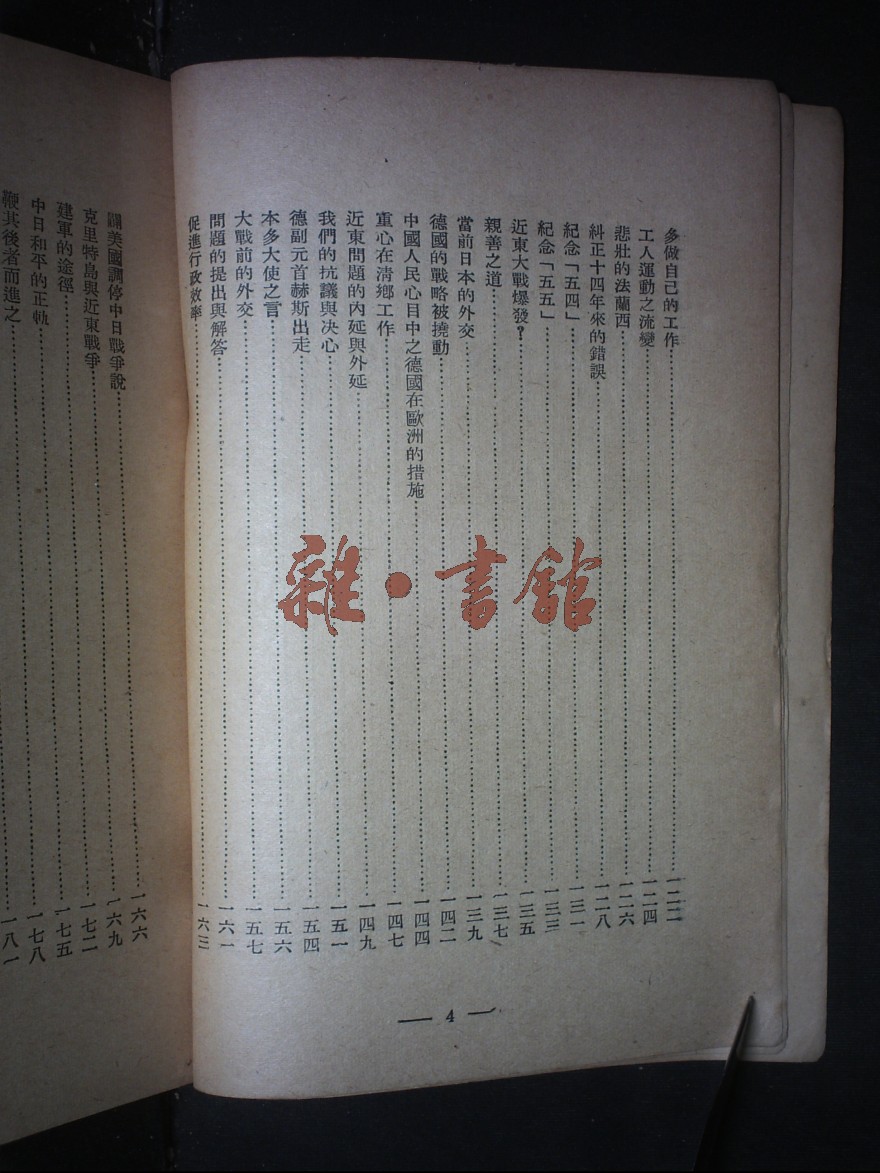 多做自己的工作……一二二
工人運動之流變……一二四
悲壯的法蘭西……一二六
糾正十四年來的錯誤……一二八
紀念「五四」……一三一
紀念「五五」……一三三
近東大戰爆發?……一三五
親善之道……一三七
當前日本的外交……一三九
德國的戰略被撓動……一四二
中國人民心目中之德國在歐洲的措施……一四四
重心在清鄉工作……一四七
近東問題的內延與外延……一四九
我們的抗議與決心……一五一
德副元首赫斯出走……一五四
本多大使之言……一五六
大戰前的外交……一五七
問題的提出與解答……一六一
促進行政效率……一六三
— 4 —
美國調停中日戰爭說……一六六
克里特島與近東戰爭……一六九
建軍的途徑……一七二
中日和平的正軌……一七五
鞭其後者而進之……一七八
一八一
雜·書館